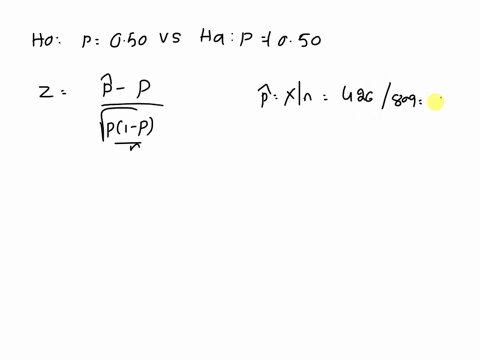 Ho: p = 0.50 vs Ha: p ≠ 0.50
Z = p̂ - p / √p(1-p)/n
p̂ = x/n = 426/809 =